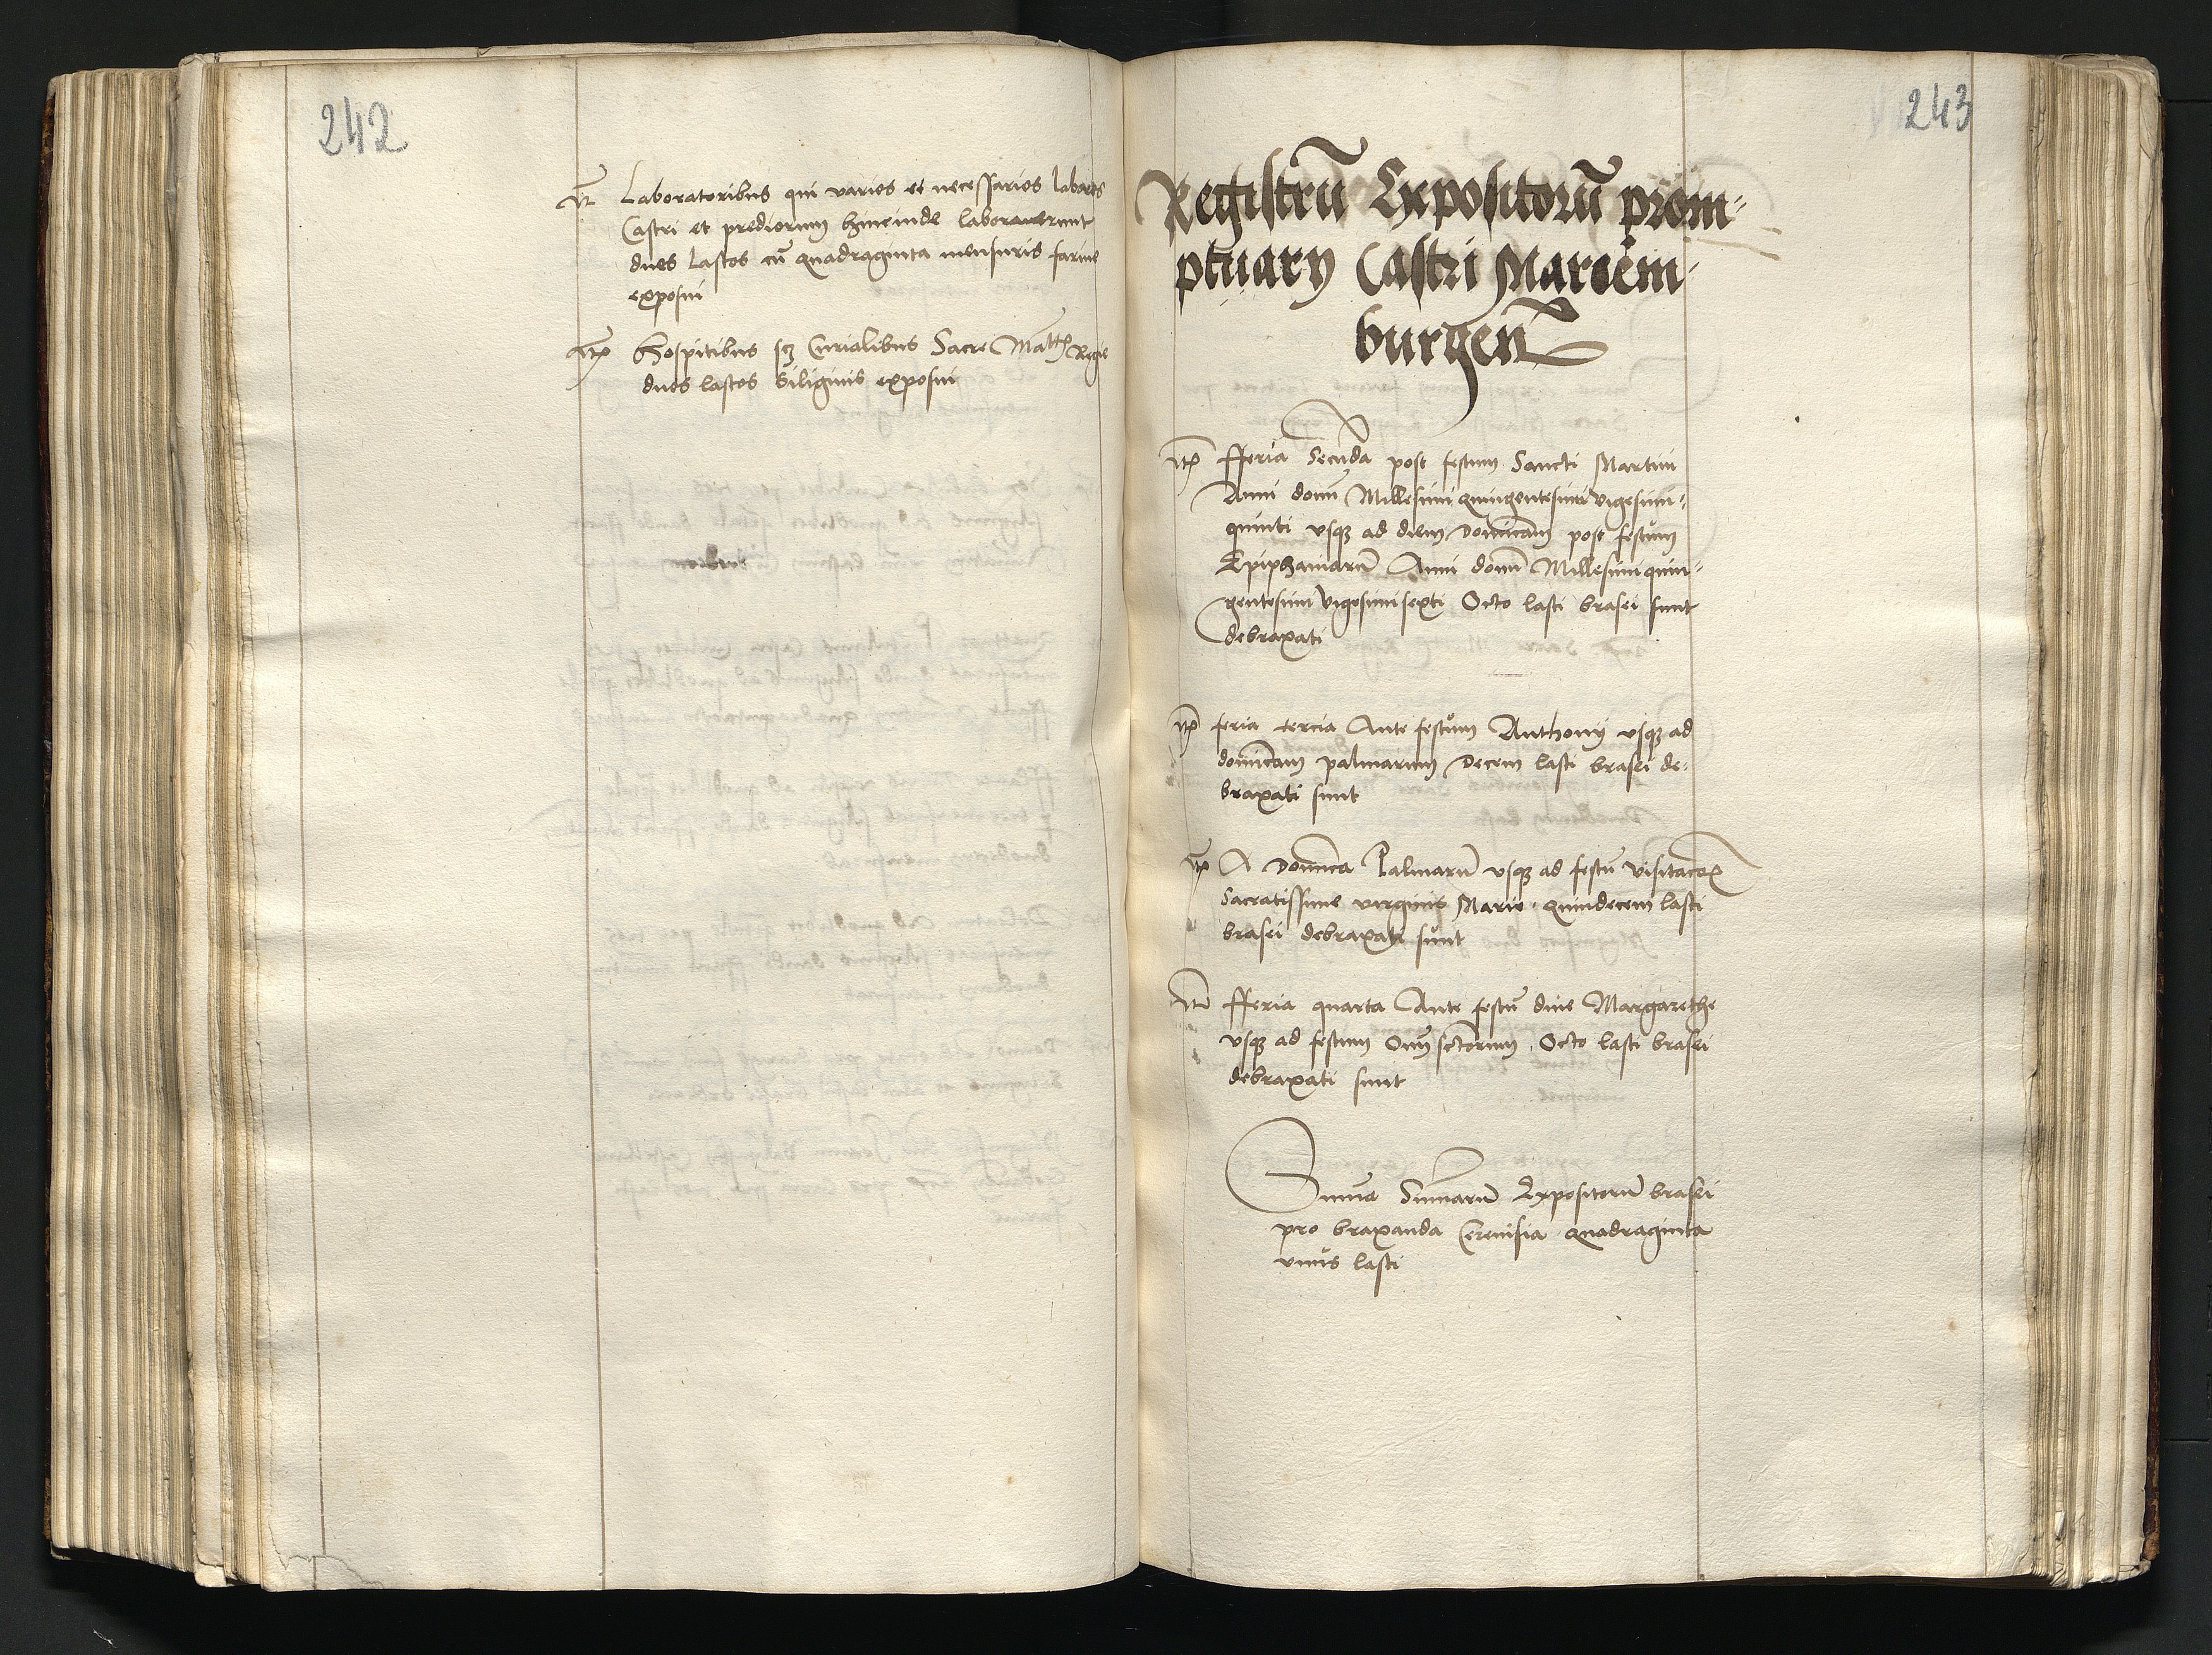 242
Itm Laboratoribus qui varios et necessarios labores
Castri et prediorum hincinde laboraverunt
duos Lastos cū quadraginta mensuris farine
exposui
Itm Hospitibus scz Curialibus Sacre Mattis Regie
duos lastos Siliginis exposui
243
Registrū Expositorū prom-
ptuary Castri Mariem-
burgen
Itm fferia Secūda post festum Sancti Martini
Anni domī Millesimi quingentesimi vigesimi-
quinti vsqz ad diem Domīcam post festum
Epiphaniarū Anni domī Millesimi quin-
gentesimi vigesimisexti Octo lasti brasei sunt
debraxati
Itm feria tercia Ante festum Anthonij vsqz ad
domīcam palmarum Decem lasti brasei de-
braxati sunt
Itm A Domīca Palmarū vsqz ad festū visitacōis
Sacratissime virginis Marie quindecem lasti
brasei debraxati sunt
Itm fferia quarta Ante festū diue Margarethe
vsqz ad festum Omī sctorum Octo lasti brasei
debraxati sunt
Suma Sumarū Expositorū brasei
pro braxanda Cereuisia quadraginta
vnus lasti